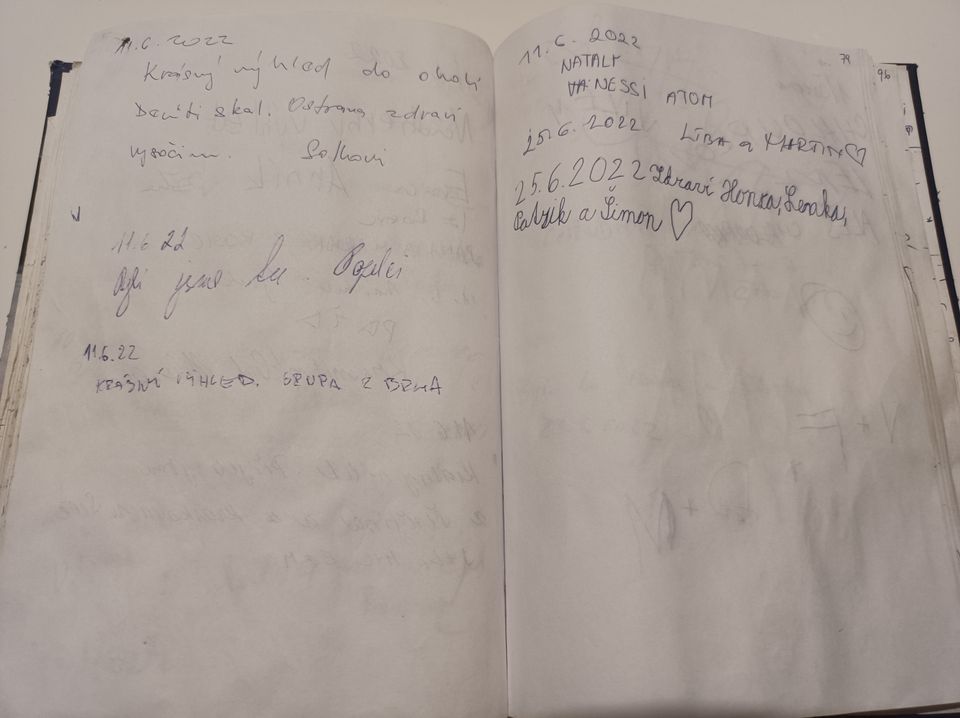 11.6.2022
Krásný výhled do okolí
Devíti skal. Ostrava zdraví
vysočinu.
11.6 22
Byli jsme tu.
11.6.22
KRÁSNÝ VÝHLED. GRUPA Z BRNA
11.6.2022
79
96
NATALY
VANESSI ATOM
25.6.2022 LÍBA a MARTIN♡
25.6.2022 Zdraví Honza, Lenka,
Patrik a Šimon ♡